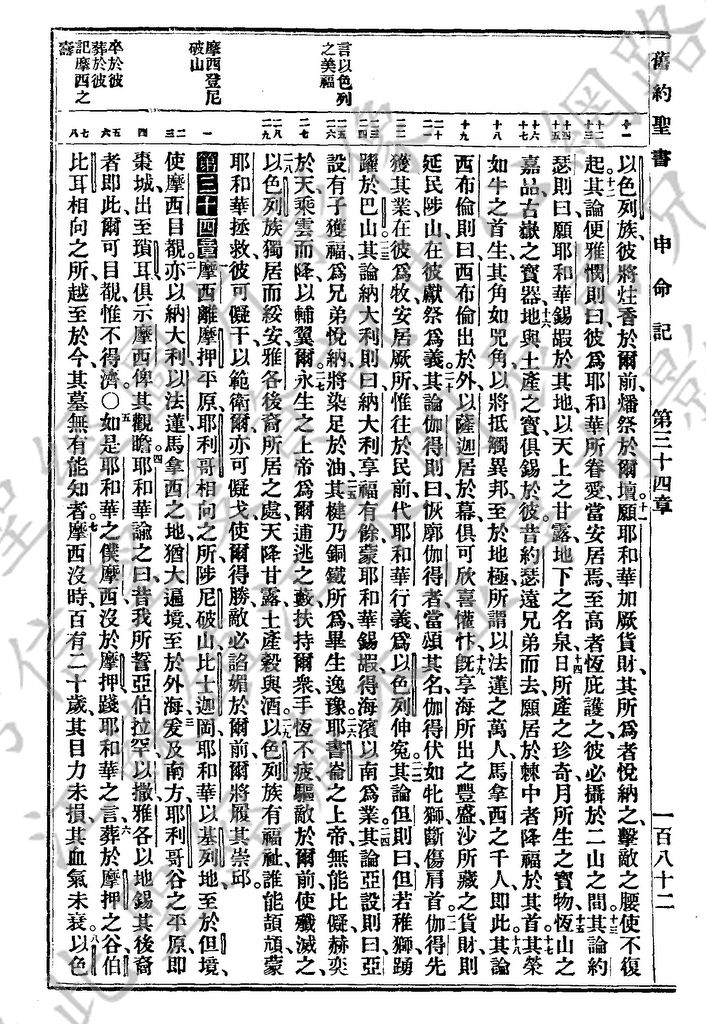 舊約聖書 申命記 第三十四章 一百八十二
以色列族、彼將炷香於爾前、燔祭於爾壇、願耶和華加厥貨財、其所爲者悅納之、擊敵之腰、使不復
起、其論便雅憫則曰、彼爲耶和華所眷愛、當安居焉、至高者恆庇護之、彼必攝於二山之間、其論約
瑟則曰、願耶和華錫嘏於其地、以天上之甘露、地下之名泉、日所產之珍奇、月所生之寶物、恆山之
嘉品、古嶽之寶器、地與土產之寶、俱錫於彼、昔約瑟遠兄弟而去、願居於棘中者、降福於其首、其榮
如牛之首生、其角如兕角、以將抵觸異邦、至於地極、所謂以法蓮之萬人、馬拿西之千人、卽此、其論
西布倫則曰、西布倫出於外、以薩迦居於幕、俱可欣喜懽忭、旣享海所出之豐盛、沙所藏之貨財、則
延民陟山、在彼獻祭爲義、其論伽得則曰、恢廓伽得者、當頌其名、伽得伏如牝獅、斷傷肩首、伽得先
獲其業、在彼爲牧、安居厥所、惟往於民前、代耶和華行義、爲以色列伸冤、其論但則曰、但若稚獅、踴
躍於巴山、其論納大利則曰、納大利享福有餘、蒙耶和華錫嘏、得海濱以南爲業、其論亞設則曰、亞
設有子獲福、爲兄弟悅納、將染足於油、其楗乃銅鐵所爲、畢生逸豫、耶書崙之上帝、無能比儗、赫奕
於天、乘雲而降、以輔翼爾、永生之上帝、爲爾逋逃之藪、扶持爾衆、手恆不疲、驅敵於爾前、使殲滅之、
以色列族獨居而綏安、雅各後裔所居之處、天降甘露、土產穀與酒、以色列族有福祉、誰能頡頏、蒙
耶和華拯救、彼可儗干以範衛爾、亦可儗戈使爾得勝、敵必諂媚於爾前、爾將履其崇邱。
第三十四章 摩西離摩押平原、耶利哥相向之所、陟尼破山、比士迦岡、耶和華以基列地至於但境、
使摩西目覩、亦以納大利、以法蓮、馬拿西之地、猶大遍境、至於外海、爰及南方、耶利哥谷之平原、卽
棗城、出至瑣耳、俱示摩西、俾其觀瞻、耶和華諭之曰、昔我所誓亞伯拉罕、以撒、雅各、以地錫其後裔
者、卽此、爾可目覩、惟不得濟、○如是耶和華之僕摩西、沒於摩押、踐耶和華之言、葬於摩押之谷、伯
比耳相向之所、越至於今、其墓無有能知者、摩西沒時、百有二十歲、其目力未損、其血氣未衰、以色
言以色列
之美福
摩西登尼
破山
卒於彼
葬於彼
記摩西之
壽